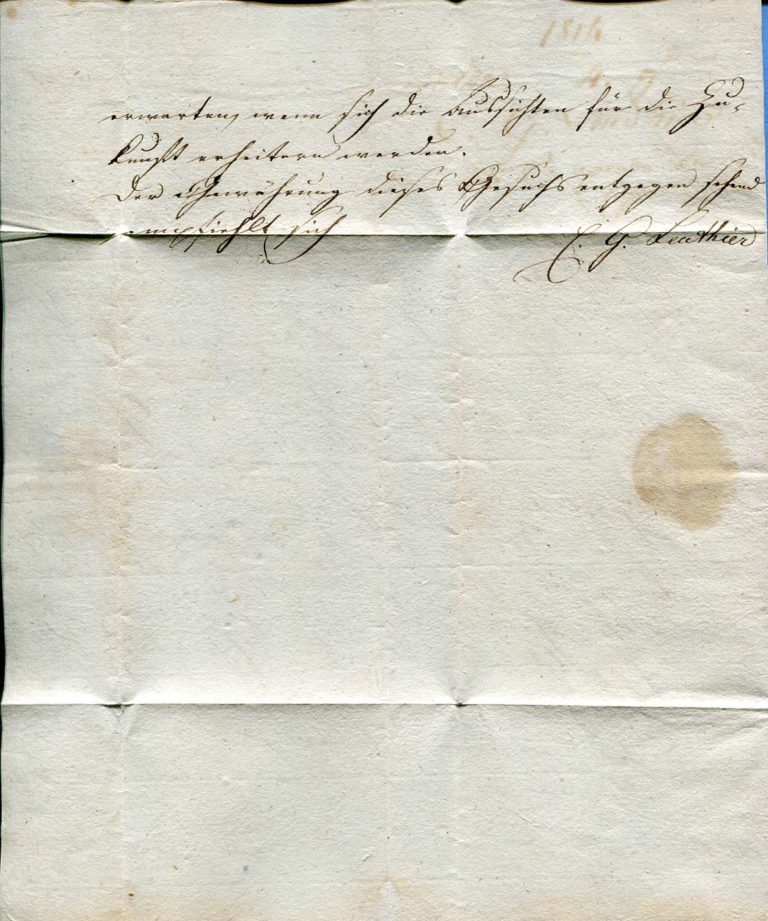 erwarten, wenn sich die Aussichten für die Zu-
kunft erheitern werden.
Der Gewährung dieses Gesuchs entgegen sehend
empfiehlt sich
C. G. Leuthier